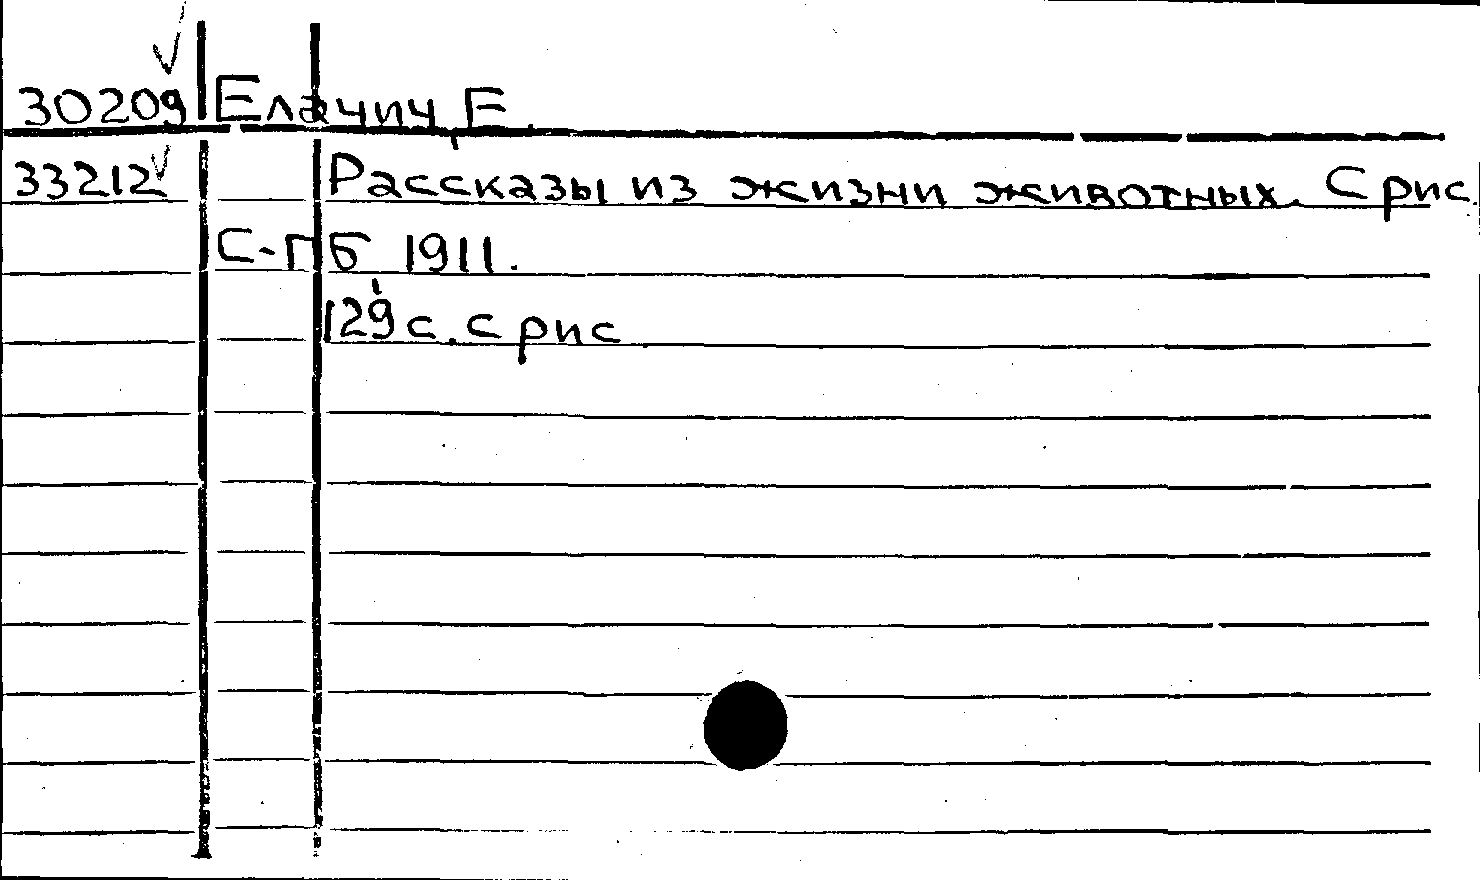 30209 Елачич, Е.
33212 Рассказы из жизни животных. С рис.
С-Пб 1911.
129 с. с рис